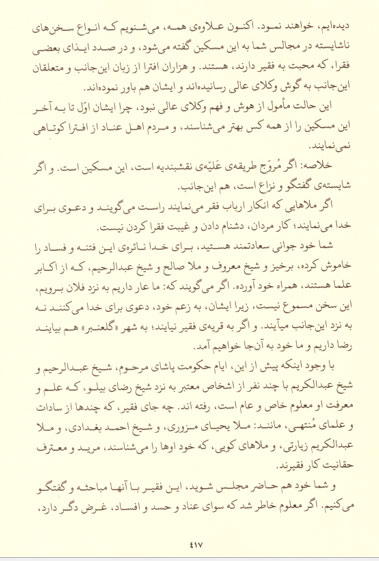 دیده‌ایم، خواهند نمود. اکنون علاوه‌ی همه، می‌شنویم که انواع سخن‌های
ناشایسته در مجالس شما به این مسکین گفته می‌شود، و در صدد ایذای بعضی
فقرا، که محبت به فقیر دارند، هستند. و هزاران افترا از زبان این‌جانب و متعلقان
این‌جانب به گوش وکلای عالی رسانیده‌اند و ایشان هم باور نموده‌اند.
این حالت مأمول از هوش و فهم وکلای عالی نبود، چرا ایشان اول تا به آخر
این مسکین را از همه کس بهتر می‌شناسند، و مردم اهل عناد از افترا کوتاهی
نمی‌نمایند.
خلاصه: اگر مُروّج طریقه‌ی عَلیّه‌ی نقشبندیه است، این مسکین است. و اگر
شایسته‌ی گفتگو و نزاع است، هم این‌جانب.
اگر ملاهایی که انکار ارباب فقر می‌نمایند راست می‌گویند و دعوی برای
خدا می‌نمایند؛ کار مردان، دشنام دادن و غیبت فقرا کردن نیست.
شما خود جوانی سعادتمند هستید، برای خدا نائره‌ی این فتنه و فساد را
خاموش کرده، برخیز و شیخ معروف و ملا صالح و شیخ عبدالرحیم، که از اکابر
علما هستند، همراه خود آورده. اگر می‌گویند که: ما عار داریم به نزد فلان برویم،
این سخن مسموع نیست، زیرا ایشان، به زعم خود، دعوی برای خدا می‌کنند نه
به نزد این‌جانب میآیند. و اگر به قریه‌ی فقیر نیایند؛ به شهر «گلعنبر» هم بیایند
رضا داریم و ما خود به آن‌جا خواهیم آمد.
با وجود اینکه پیش از این، ایام حکومت پاشای مرحوم، شیخ عبدالرحیم و
شیخ عبدالکریم با چند نفر از اشخاص معتبر به نزد شیخ رضای بیلو، که علم و
معرفت او معلوم خاص و عام است، رفته اند. چه جای فقیر، که چندها از سادات
و علمای مُنتهی، مانند: ملا یحیای مزوری، و شیخ احمد بغدادی، و ملا
عبدالکریم زیارتی، و ملاهای کویی، که خود اوها را می‌شناسند، مرید و معترف
حقانیت کار فقیرند.
و شما خود هم حاضر مجلس شوید، این فقیر با آنها مباحثه و گفتگو
می‌کنیم. اگر معلوم خاطر شد که سوای عناد و حسد و افساد، غرض دگر دارد،
۴۱۷